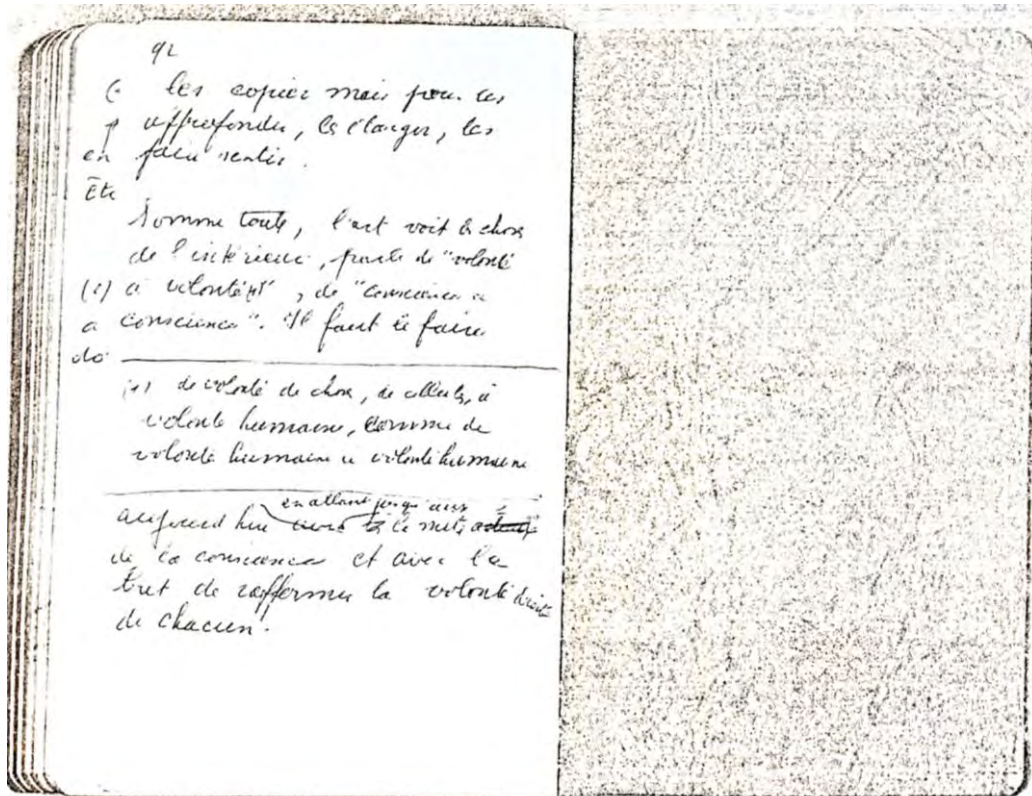 92
les copier mais pour les
approfondir, les élargir, les
faire sentir.
en
Etc
Somme toute, l'art voit les choses
de l'intérieur, parle de "volonté
à volonté(1)", de "conscience à
conscience". Il faut le faire
do
(1) de volonté de chose, de cellule, à
volonté humaine, comme de
volonté humaine à volonté humaine
aujourd'hui en allant jusqu'aux
de la conscience et avec le
but de raffermir la volonté
de chacun.